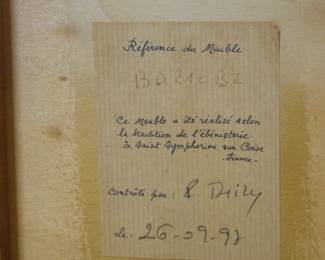 Référence du Meuble
BO210B2
Ce meuble a été réalisé selon
la tradition de l'ébénisterie
à Saint Symphorien sur Coise
-France-
contrôlé par :
le : 26-09-97